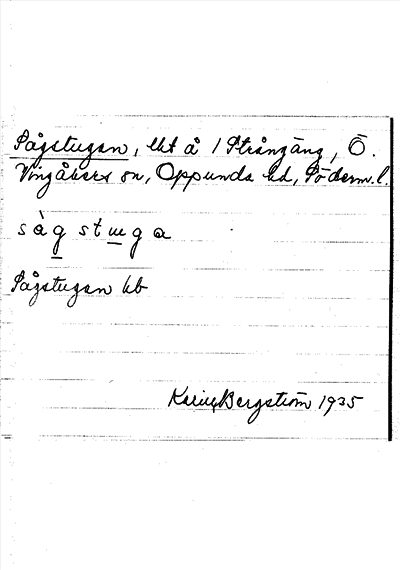 Sågstugan, lht å 1 Strångäng, Ö.
Vingåkers sn, Oppunda hd, Söderm.l.
sàg stuga
Sågstugan kb
Karin Bergström 1935